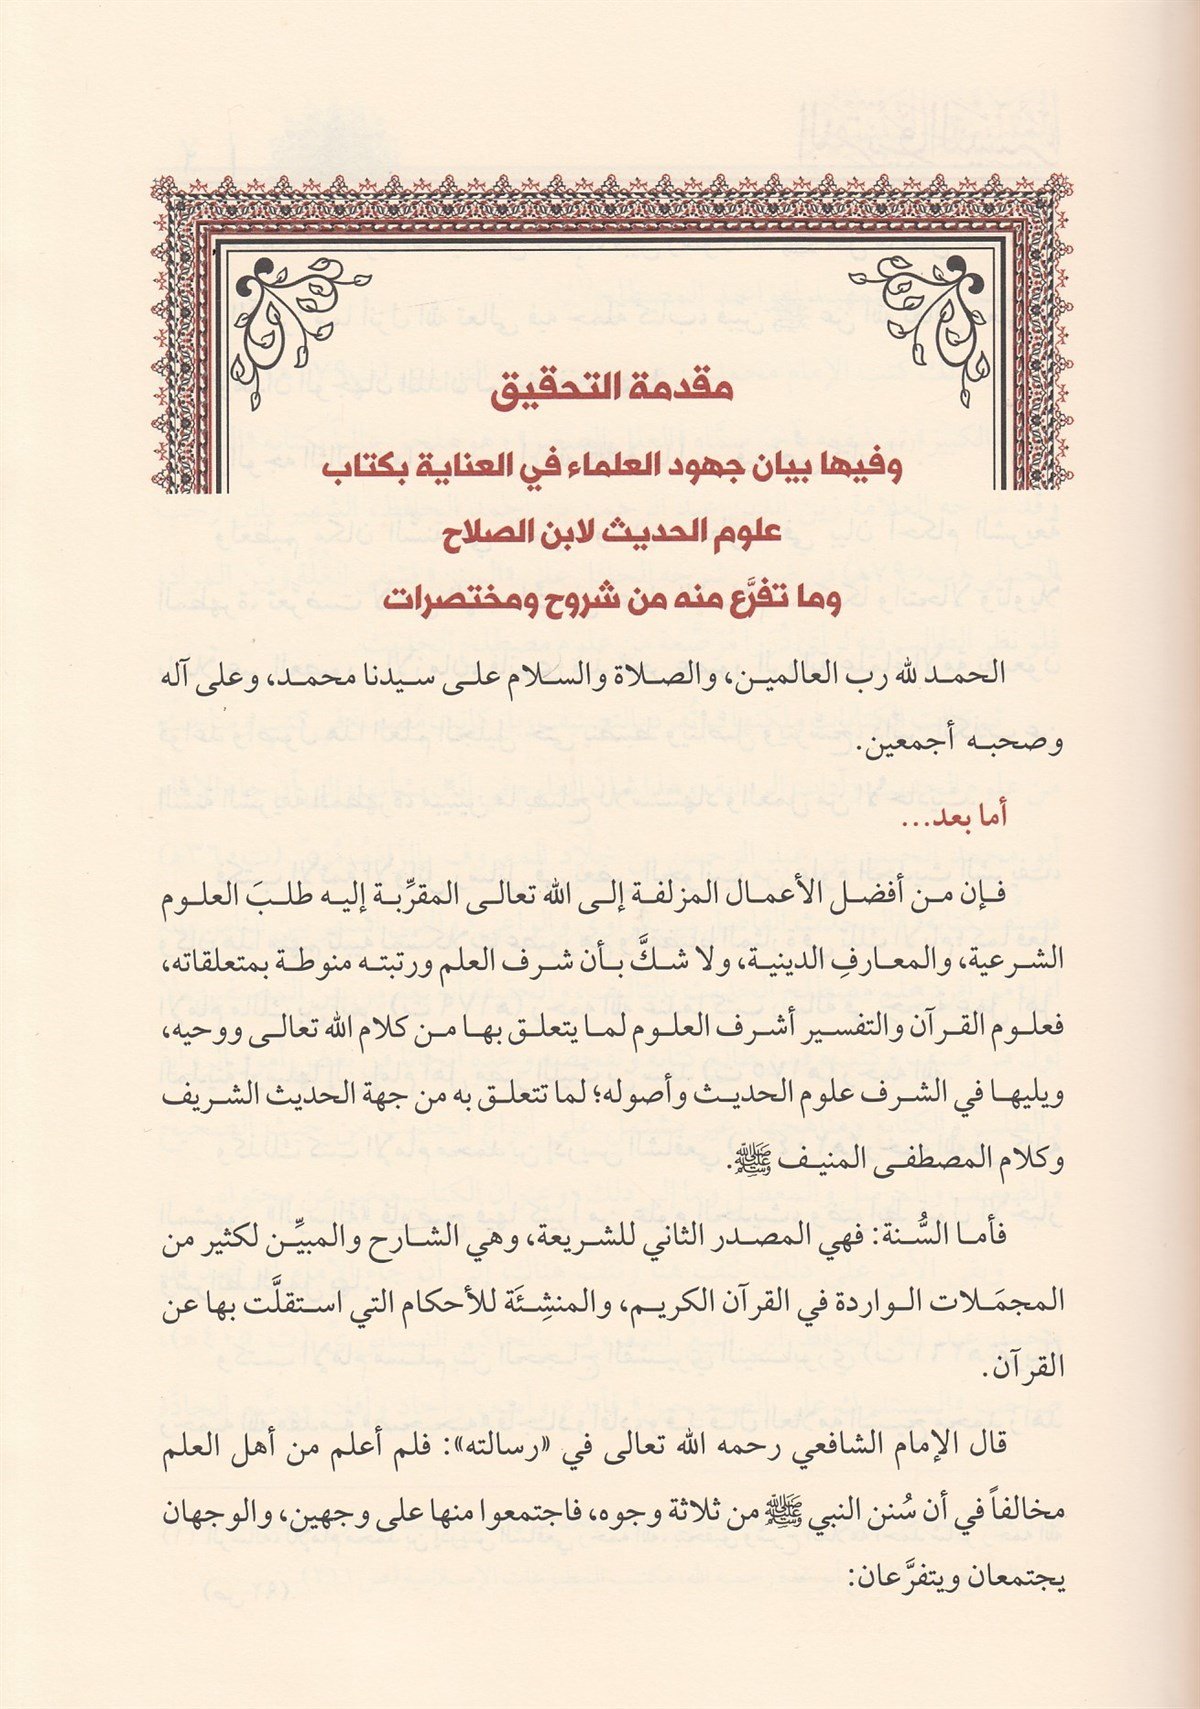 مقدمة التحقيق
وفيها بيان جهود العلماء في العناية بكتاب
علوم الحديث لابن الصلاح
وما تفرَّع منه من شروح ومختصرات
الحمد لله رب العالمين، والصلاة والسلام على سيدنا محمد، وعلى آله
وصحبه أجمعين.
أما بعد...
فإن من أفضل الأعمال المزلفة إلى الله تعالى المقرِّبة إليه طلبَ العلوم
الشرعية، والمعارفِ الدينية، ولا شكَّ بأن شرف العلم ورتبته منوطة بمتعلقاته،
فعلوم القرآن والتفسير أشرف العلوم لما يتعلق بها من كلام الله تعالى ووحيه،
ويليها في الشرف علوم الحديث وأصوله؛ لما تتعلق به من جهة الحديث الشريف
وكلام المصطفى المنيف ﷺ.
فأما السُّنة: فهي المصدر الثاني للشريعة، وهي الشارح والمبيِّن لكثير من
المجمَلات الواردة في القرآن الكريم، والمنشِئَة للأحكام التي استقلَّت بها عن
القرآن.
قال الإمام الشافعي رحمه الله تعالى في «رسالته»: فلم أعلم من أهل العلم
مخالفاً في أن سُنن النبي ﷺ من ثلاثة وجوه، فاجتمعوا منها على وجهين، والوجهان
يجتمعان ويتفرَّعان: